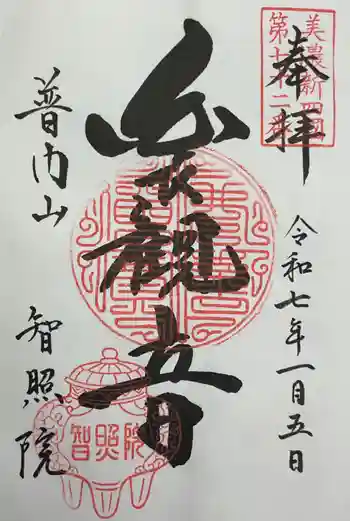 奉拝
美濃新四国
第十二番
令和七年一月五日
観音
普門山
智照院
智照院